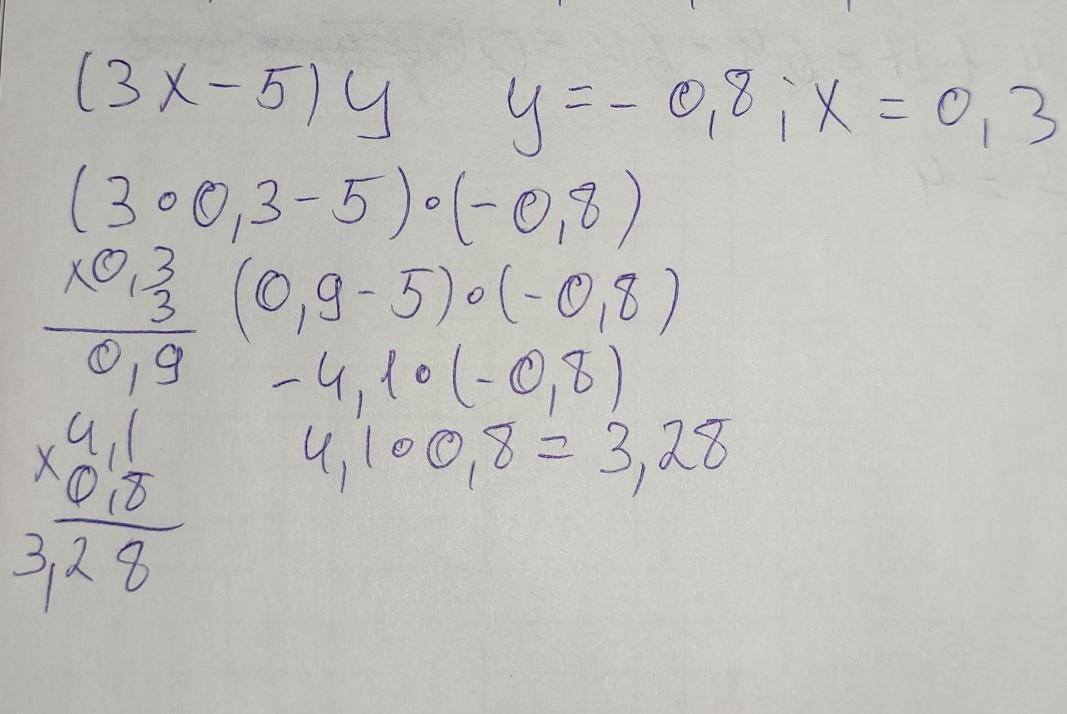 (3x-5)y y=-0,8; x=0,3
(3∘0,3-5)∘(-0,8)
x0,3 (0,9-5)∘(-0,8)
3
0,9 -4,1∘(-0,8)
4,1 4,1∘0,8=3,28
x0,8
3,28